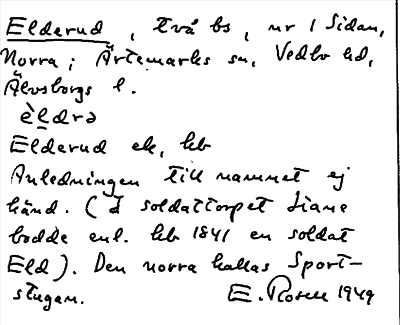 Elderud, två bs, nr 1 Sidan,
Norra; Ärtemarks sn, Vedbo hd,
Älvsborgs l.
èldrə
Elderud ek, kb
Anledningen till namnet ej
känd. (I soldattorpet Liane
bodde enl. kb 1841 en soldat
Eld). Den norra kallas Sport-
stugan.
E. Rosell 1949